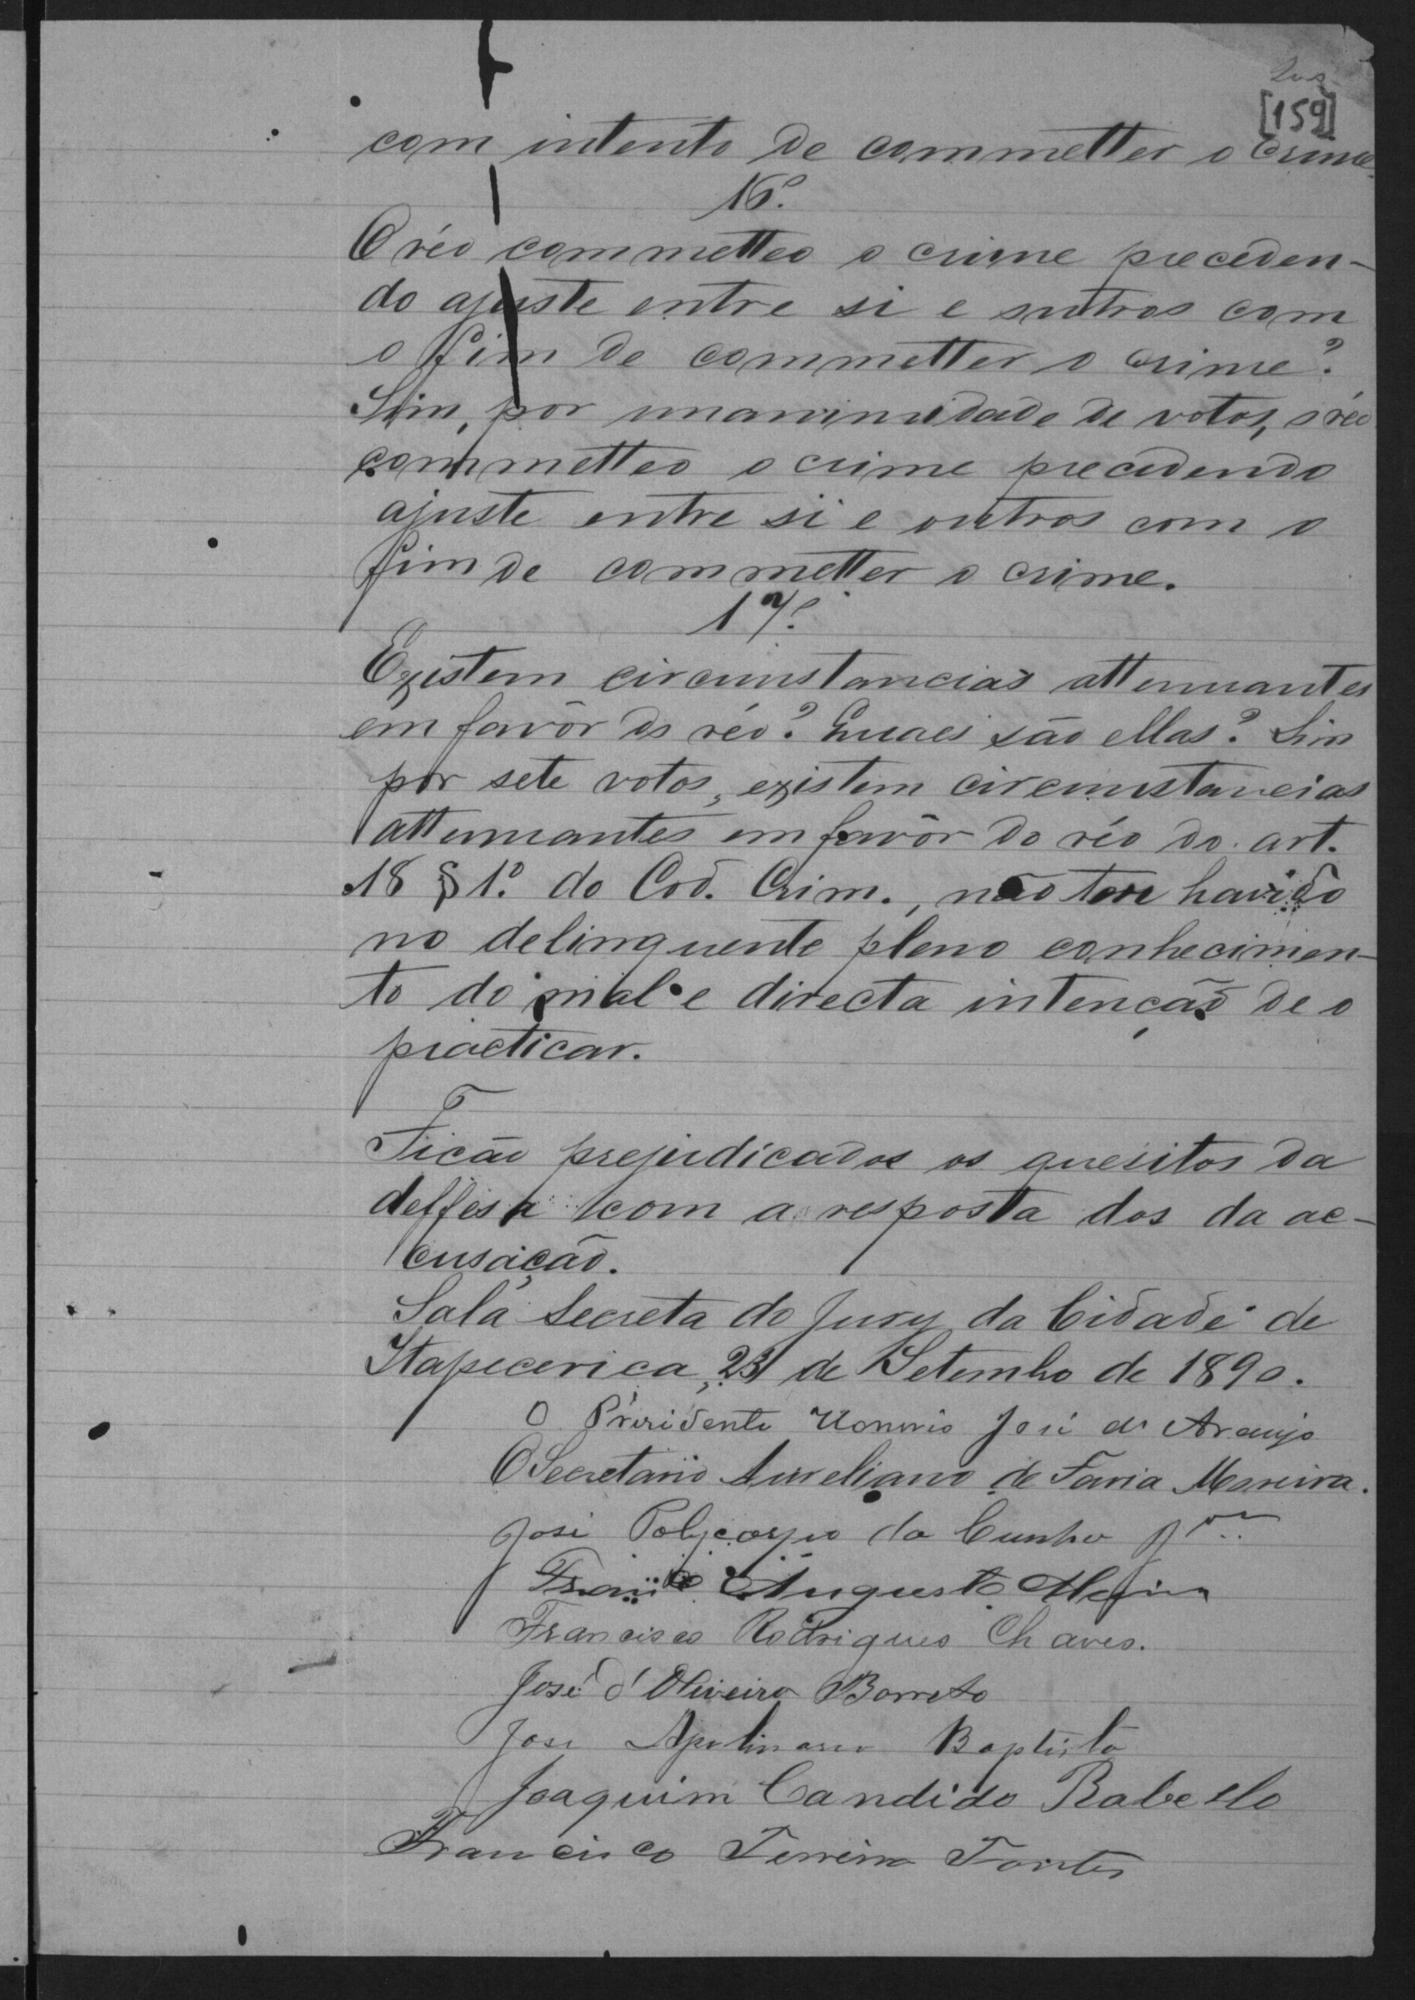 [159]
com intento de commetter o crime.
16º.
O réo commetteo o crime preceden-
do ajuste entre si e outros com
o fim de commetter o crime?
Sim, por unanimidade de votos, o réo
commetteo o crime precedendo
ajuste entre si e outros com o
fim de commetter o crime.
17º.
Existem circumstancias attenuantes
em favôr do réo? Quaes são ellas? Sim
por sete votos, existem circumstancias
attenuantes em favôr do réo do art.
18 § 1º. do Cod. Crim., não ter havido
no delinquente pleno conhecimen-
to do mal e directa intenção de o
practicar.
Ficão prejudicados os quesitos da
deffesa com a resposta dos da ac-
cusação.
Sala Secreta do Jury da Cidade de
Itapecerica, 23 de Setembro de 1890.
O Presidente Honorio José de Araujo
O Secretario Aureliano de Faria Moreira.
José Polycarpo da Cunha Jor.
Augusto
Francisco Rodrigues Chaves.
José d'Oliveira Barreto
José Apolinario Baptista
Joaquim Candido Rabello
Francisco Ferreira Fontes